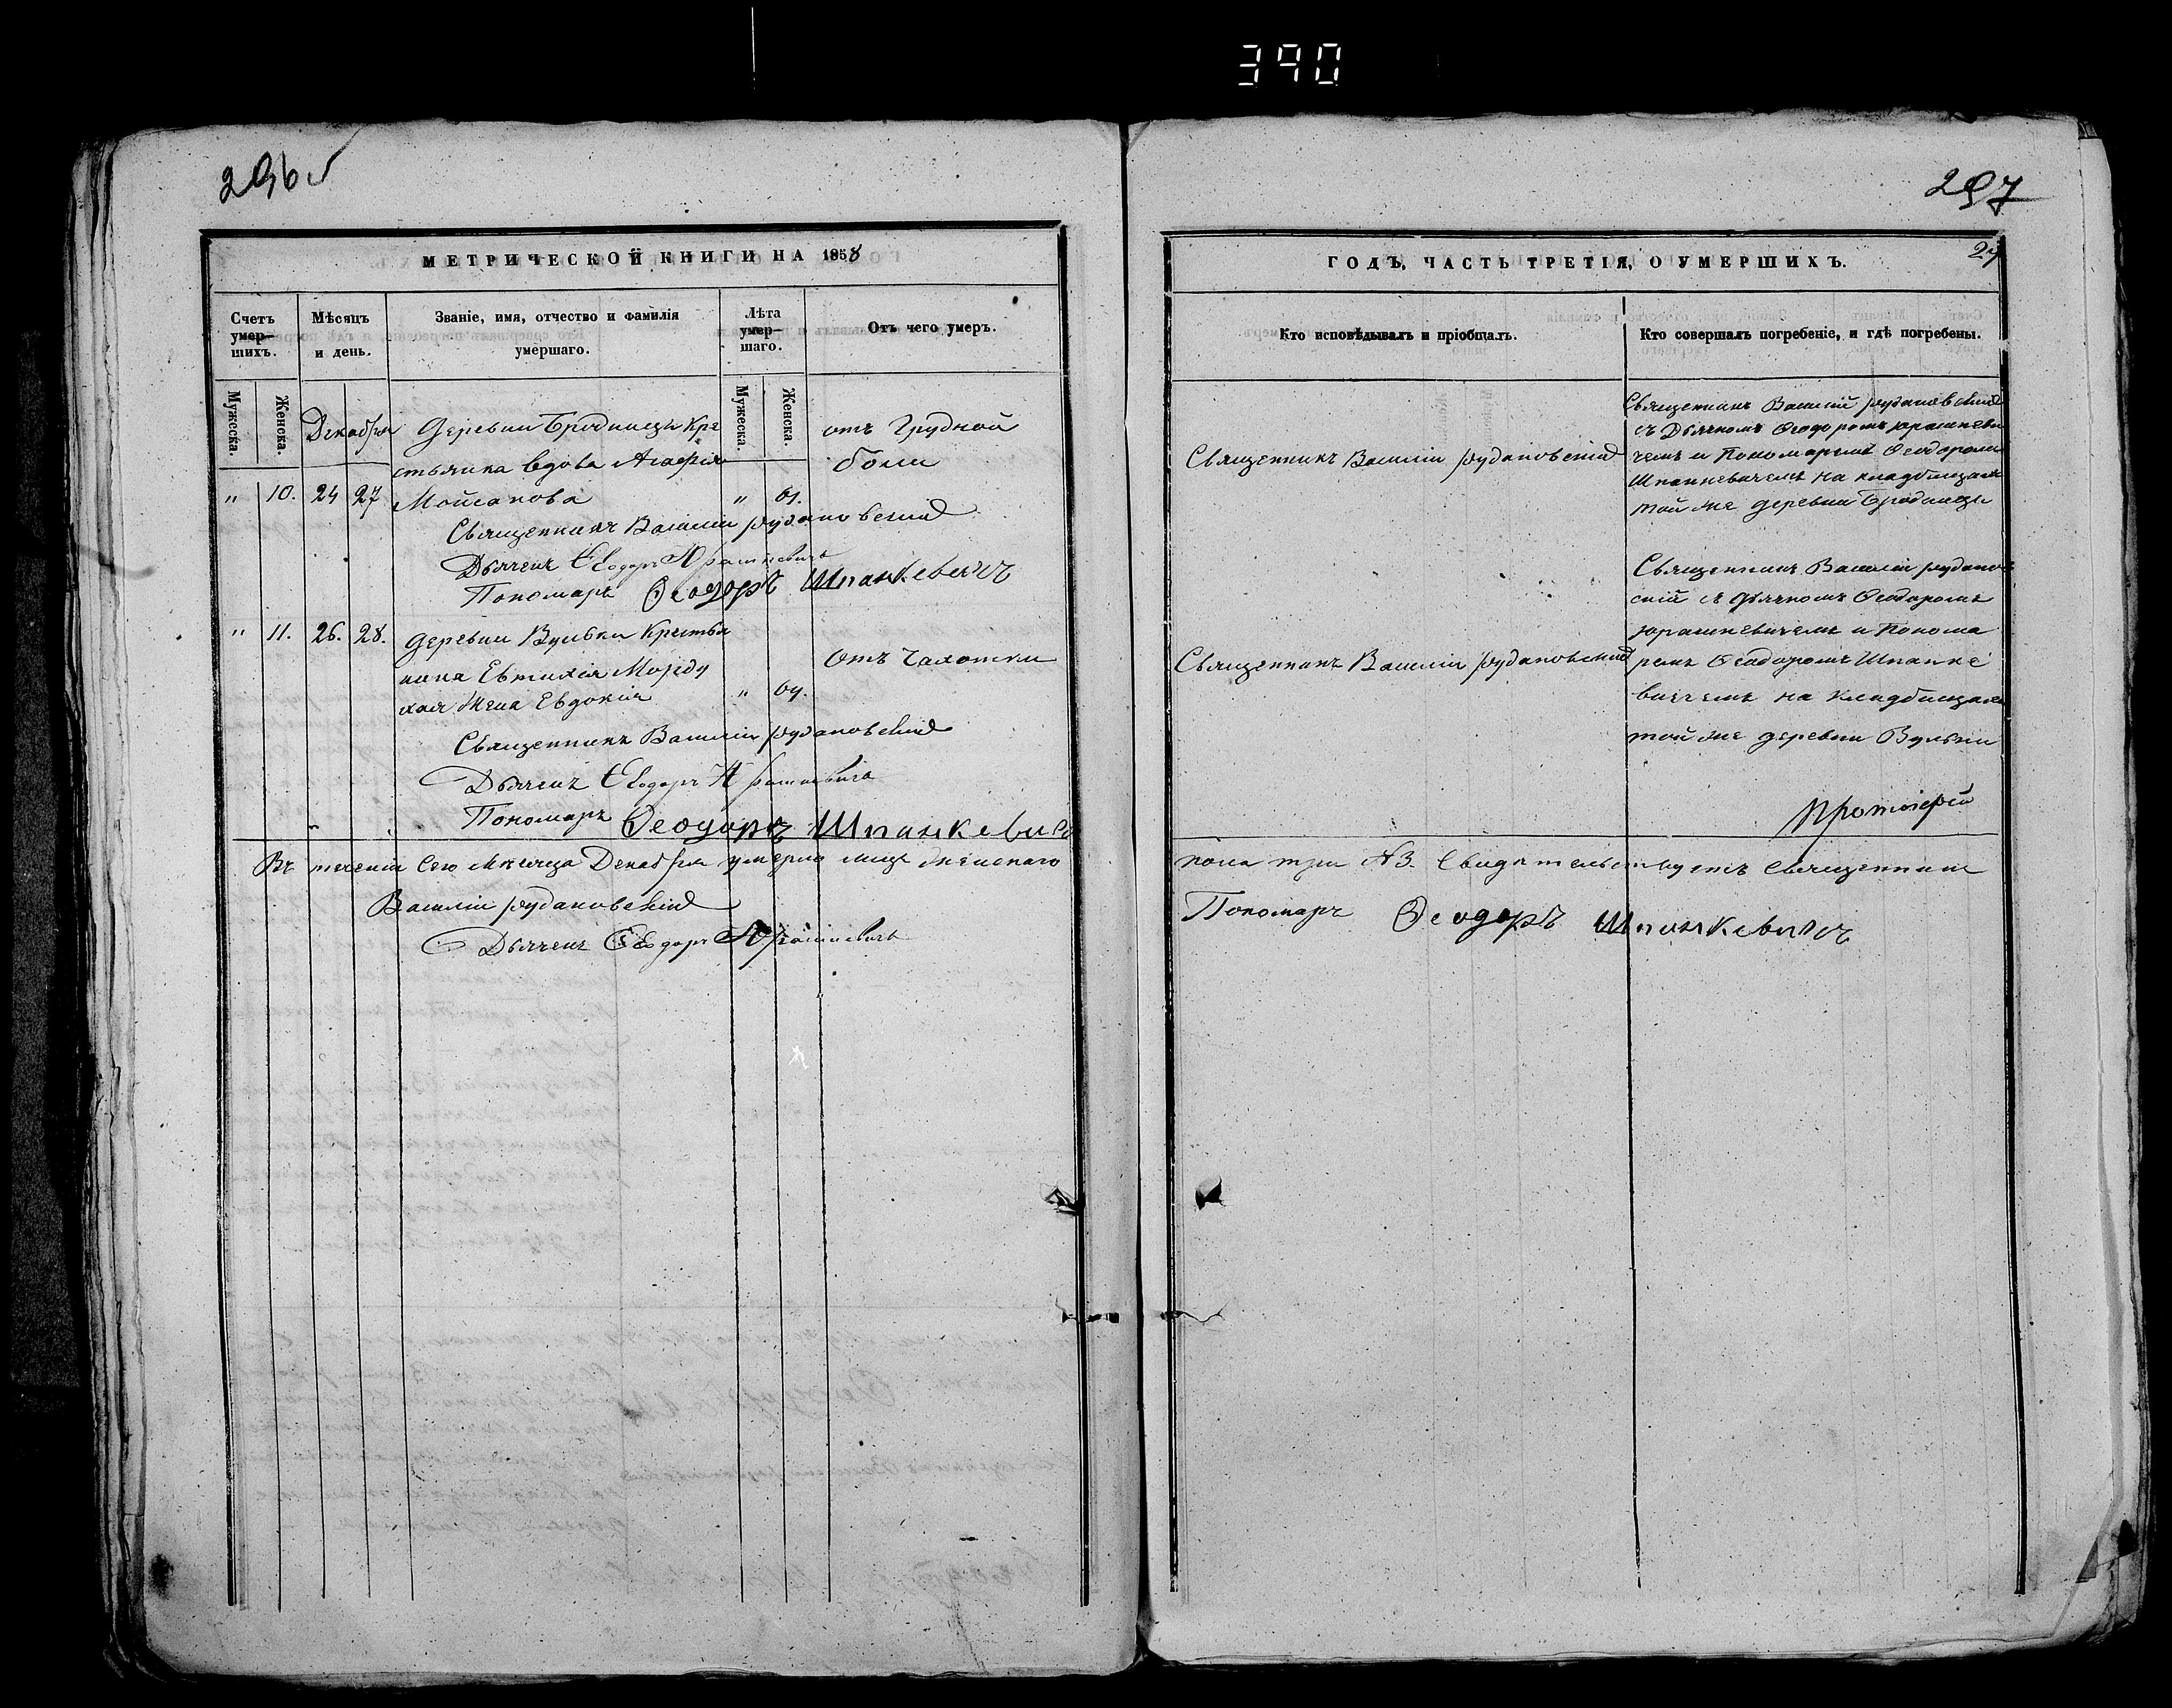 390
296 об
297
МЕТРИЧЕСКОЙ КНИГИ НА 1858
Счетъ умер-шихъ.
Мѣсяцъ и день.
Званіе, имя, отчество и фамилія умершаго.
Лѣта умер-шаго.
Отъ чего умеръ.
Мужеска.
Женска.
Мужеска.
Женска.
Декабря
деревни Бродницы Кре
стьянка вдова Агафія
" 10. 24 27 Мойсакова " 61.
отъ грудной
боли
Священникъ Василій Рудановскій
Дьячекъ Ѳеодоръ Юрашкевичъ
Пономарь Ѳеодоръ Шпанкевичъ
" 11. 26. 28. деревни Вульки Крестья
нина Евтихія Морду
хая Жена Евдокія " 64.
Отъ Чахотки
Священникъ Василій Рудановскій
Дьячекъ Ѳеодоръ Юрашкевичъ
Пономарь Ѳеодоръ Шпанкевичъ
Въ теченіи сего Мѣсяца Декабря умерло лицъ Женскаго
Василій Рудановскій
Дьячекъ Ѳеодоръ Юрашкевичъ
ГОДЪ, ЧАСТЬ ТРЕТІЯ, О УМЕРШИХЪ.
Кто исповѣдывалъ и пріобщалъ.
Кто совершалъ погребеніе, и гдѣ погребены.
Священникъ Василій Рудановскій
Священникъ Василій Рудановскій
съ Дьячкомъ Ѳеодоромъ Юрашкеви
чемъ и Пономаремъ Ѳеодоромъ
Шпанкевичемъ на кладбищахъ
той же деревни Бродницы
Священникъ Василій Рудановскій
Священникъ Василій Рудановс
скій съ Дьячкомъ Ѳеодоромъ
Юрашкевичемъ и Понома
ремъ Ѳеодоромъ Шпанке
вичемъ на Кладбищахъ
той же деревни Вульки
Протоіерей
пола три №3. Свидѣтельствуетъ Священникъ
Пономарь Ѳеодоръ Шпанкевичъ